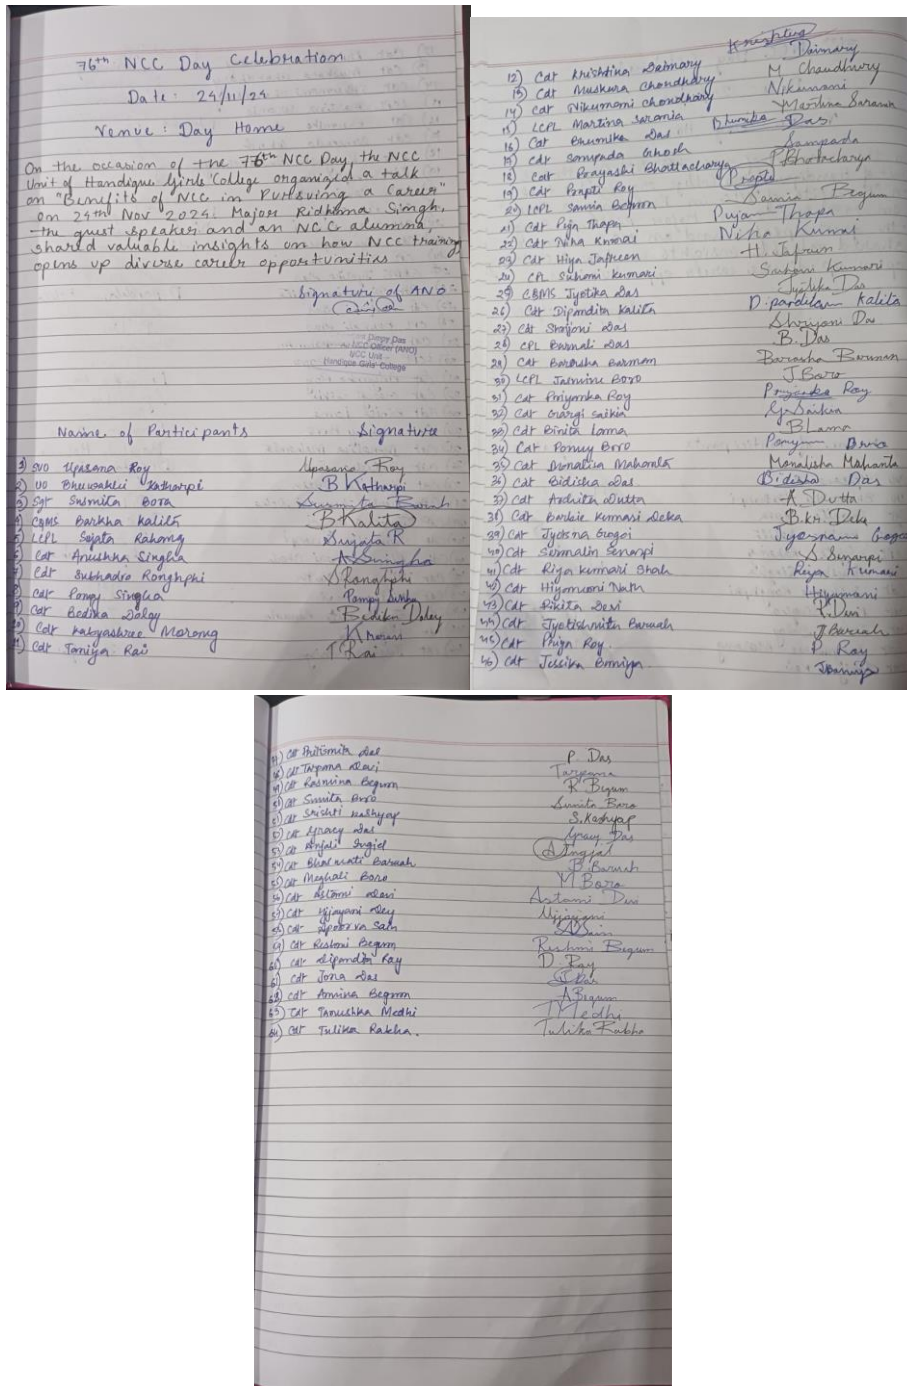 76th NCC Day Celebration
Date: 24/11/24
Venue: Day Home
On the occasion of the 76th NCC Day, the NCC
Unit of Handique Girls' College organized a talk
on "Benefits of NCC in Pursuing a Career"
on 24th Nov 2024. Major Ridhima Singh,
the guest speaker and an NCC alumna,
shared valuable insights on how NCC training
opens up diverse career opportunities
Signature of ANO:
Dimpy Das
NCC Officer (ANO)
NCC Unit
Handique Girls' College
Name of Participants Signature
1) SUO Upasana Roy Upasana Roy
2) UO Katharpi B Katharpi
3) Sgt Susmita Bora
4) CQMS Barkha Kalita B Kalita
5) LCPL Sujata Rahang Sujata R
6) Cdt Anushka Singha A Singha
7) Cdt Subhadra Ronghphi S Ronghphi
8) Cdt Pompy Singha Pompy Singha
9) Cdt Bedika Doley Bedika Doley
10) Cdt Kabyashree Morang
11) Cdt Taniya Rai T Rai
12) Cdt Krishtina Daimary Krishtina Daimary
13) Cdt Muskura Choudhury M Chaudhury
14) Cdt Nikumani Choudhary Nikumani
15) LCPL Martina Sarania Martina Sarania
16) Cdt Bhumika Das Bhumika Das
17) Cdt Sampada Ghosh Sampada
18) Cdt Prayashi Bhattacharya P Bhattacharya
19) Cdt Prapti Roy Prapti
20) LCPL Samia Begum Samia Begum
21) Cdt Puja Thapa Puja Thapa
22) Cdt Neha Kumai Neha Kumai
23) Cdt Hiya Jafreen H. Jafrun
24) CPL Suhani Kumari Suhani Kumari
25) CSMS Jyotika Das Jyotika Das
26) Cdt Dipandita Kalita D. pandita Kalita
27) Cdt Das Das
28) CPL Barnali Das B. Das
29) Cdt Barasha Barman Barasha Barman
30) LCPL Jasmine Boro J Boro
31) Cdt Priyanka Roy Priyanka Roy
32) Cdt Gargi Saikia G. Saikia
33) Cdt Binita Lama B Lama
34) Cdt Boro
35) Cdt Monalisa Mahanta Monalisha Mahanta
36) Cdt Bidisha Das Bidisha Das
37) Cdt Dutta A Dutta
38) Cdt Barbie Kumari Deka B. kr. Deka
39) Cdt Jyosna Gogoi Gogoi
40) Cdt Sermalin Senarpi S. Senarpi
41) Cdt Riya Kumari Shah Riya Kumari
42) Cdt Hiyamoni Nath Hiyamani
43) Cdt Rikita Devi R. Devi
44) Cdt Jyotishmita Baruah J Baruah
45) Cdt Priya Roy P. Roy
46) Cdt Jessika Baniya J Baniya
47) Cdt Pritismita Das P. Das
48) Cdt Devi
49) Cdt Rasmina Begum R Begum
50) Cdt Sumita Boro Sumita Boro
51) Cdt Srishti Kashyap S. Kashyap
52) Cdt Gracy Das Gracy Das
53) Cdt Anjali
54) Cdt Baruah B Baruah
55) Cdt Meghali Boro M Boro
56) Cdt Astami Devi Astami Devi
57) Cdt Ujjayani Dey Ujjayani
58) Cdt Apoorva Sain A Sain
59) Cdt Reshmi Begum Reshmi Begum
60) Cdt Ray D. Ray
61) Cdt Jona Das J Das
62) Cdt Amina Begum A Begum
63) Cdt Tanushka Medhi T Medhi
64) Cdt Tulika Rabha. Tulika Rabha